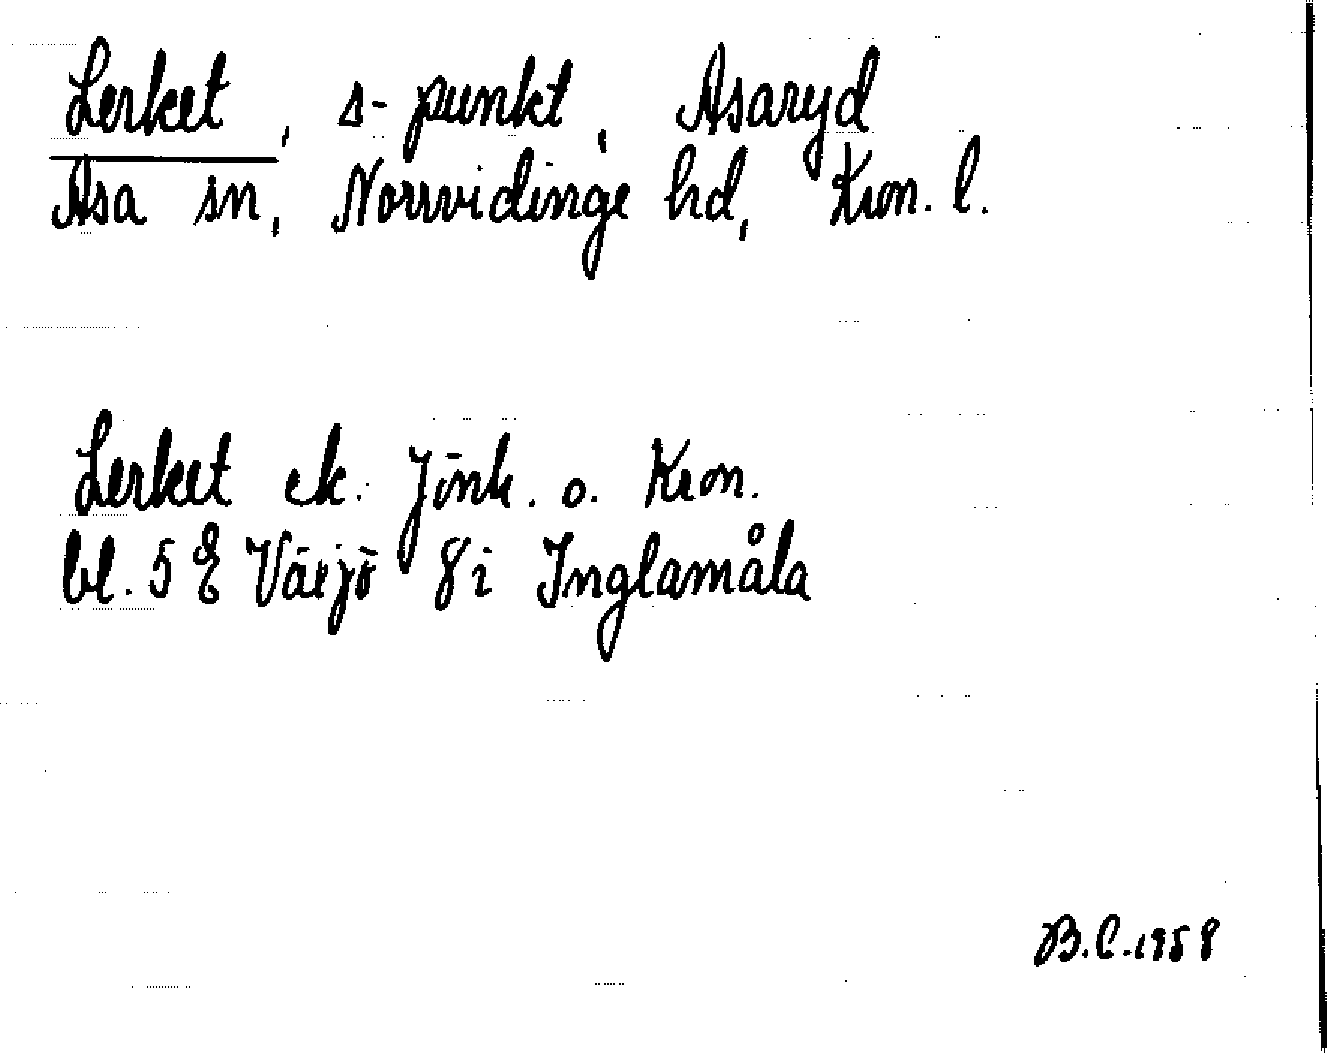 Lerket, s-punkt, Asaryd
Asa sn, Norrvidinge hd, Kron. l.
Lerket ek. Jönk. o. Kron.
bl. 5 E Växjö 8i Inglamåla
B.C. 1958